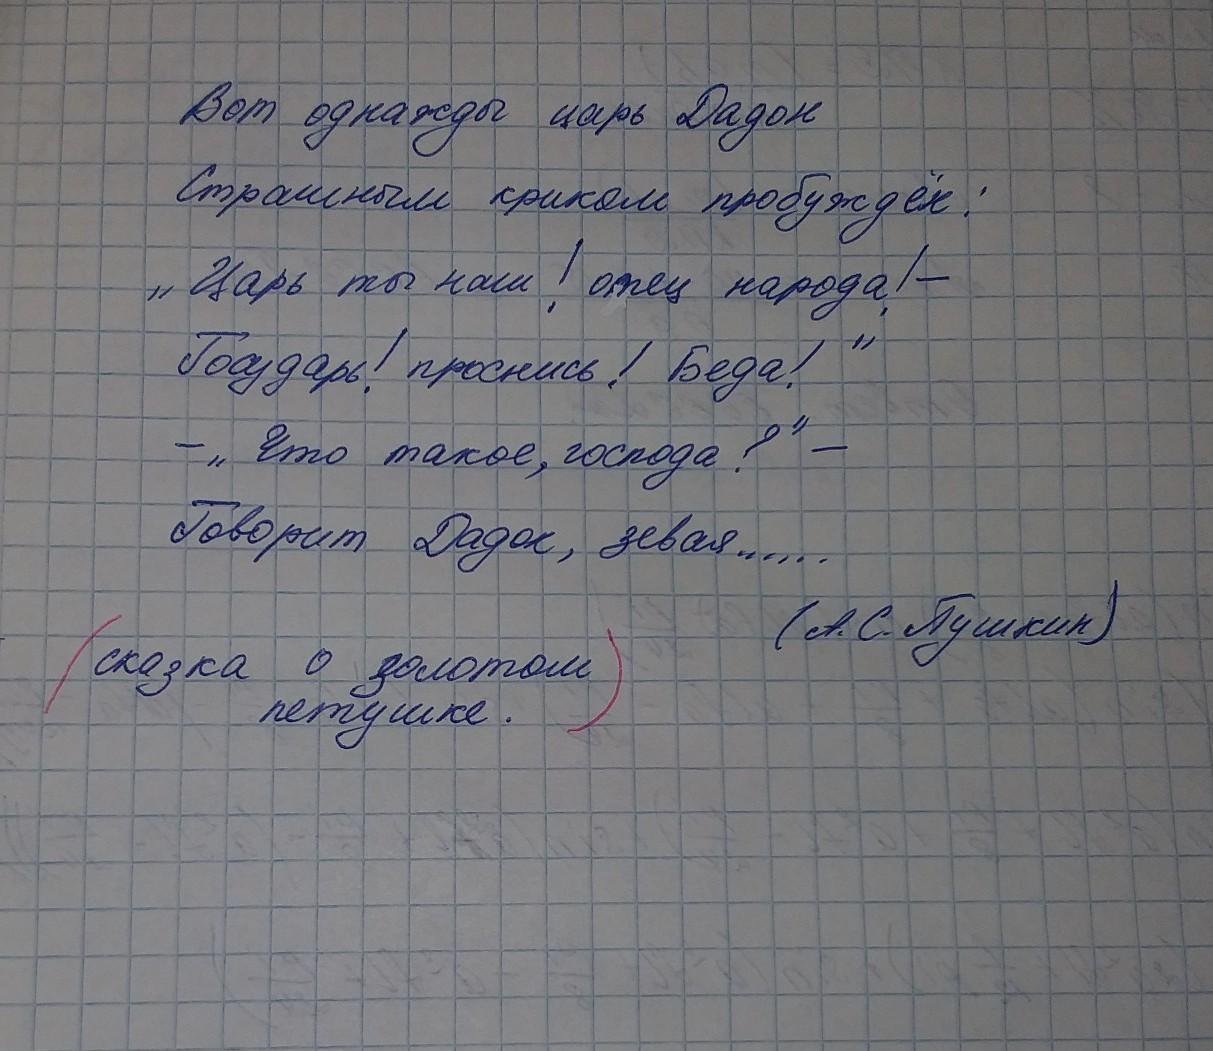 Вот однажды царь Дадон
Страшным криком пробуждён:
„Царь ты наш! отец народа! –
Государь! проснись! Беда!"
– „Что такое, господа?" –
Говорит Дадон, зевая......
(А.С. Пушкин)
(сказка о золотом
петушке.)